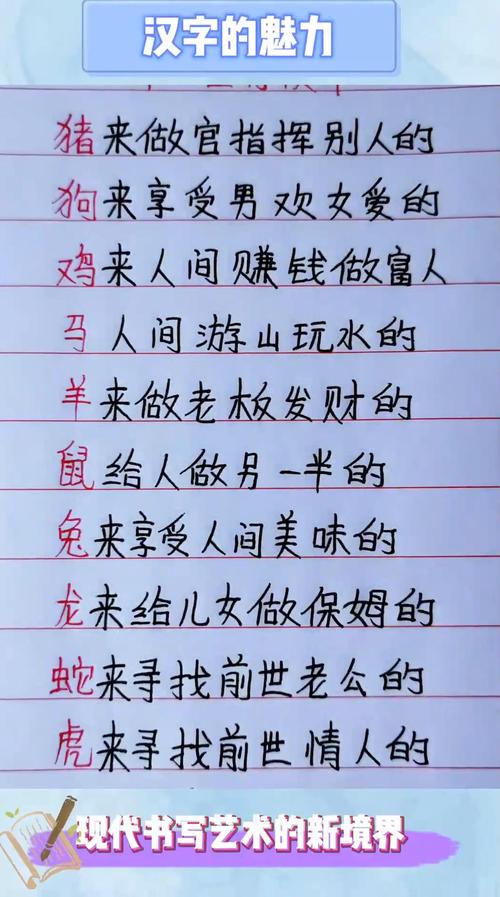 汉字的魅力
猪来做官指挥别人的
狗来享受男欢女爱的
鸡来人间赚钱做富人
马人间游山玩水的
羊来做老板发财的
鼠给人做另一半的
兔来享受人间美味的
龙来给儿女做保姆的
蛇来寻找前世老公的
虎来寻找前世情人的
现代书写艺术的新境界